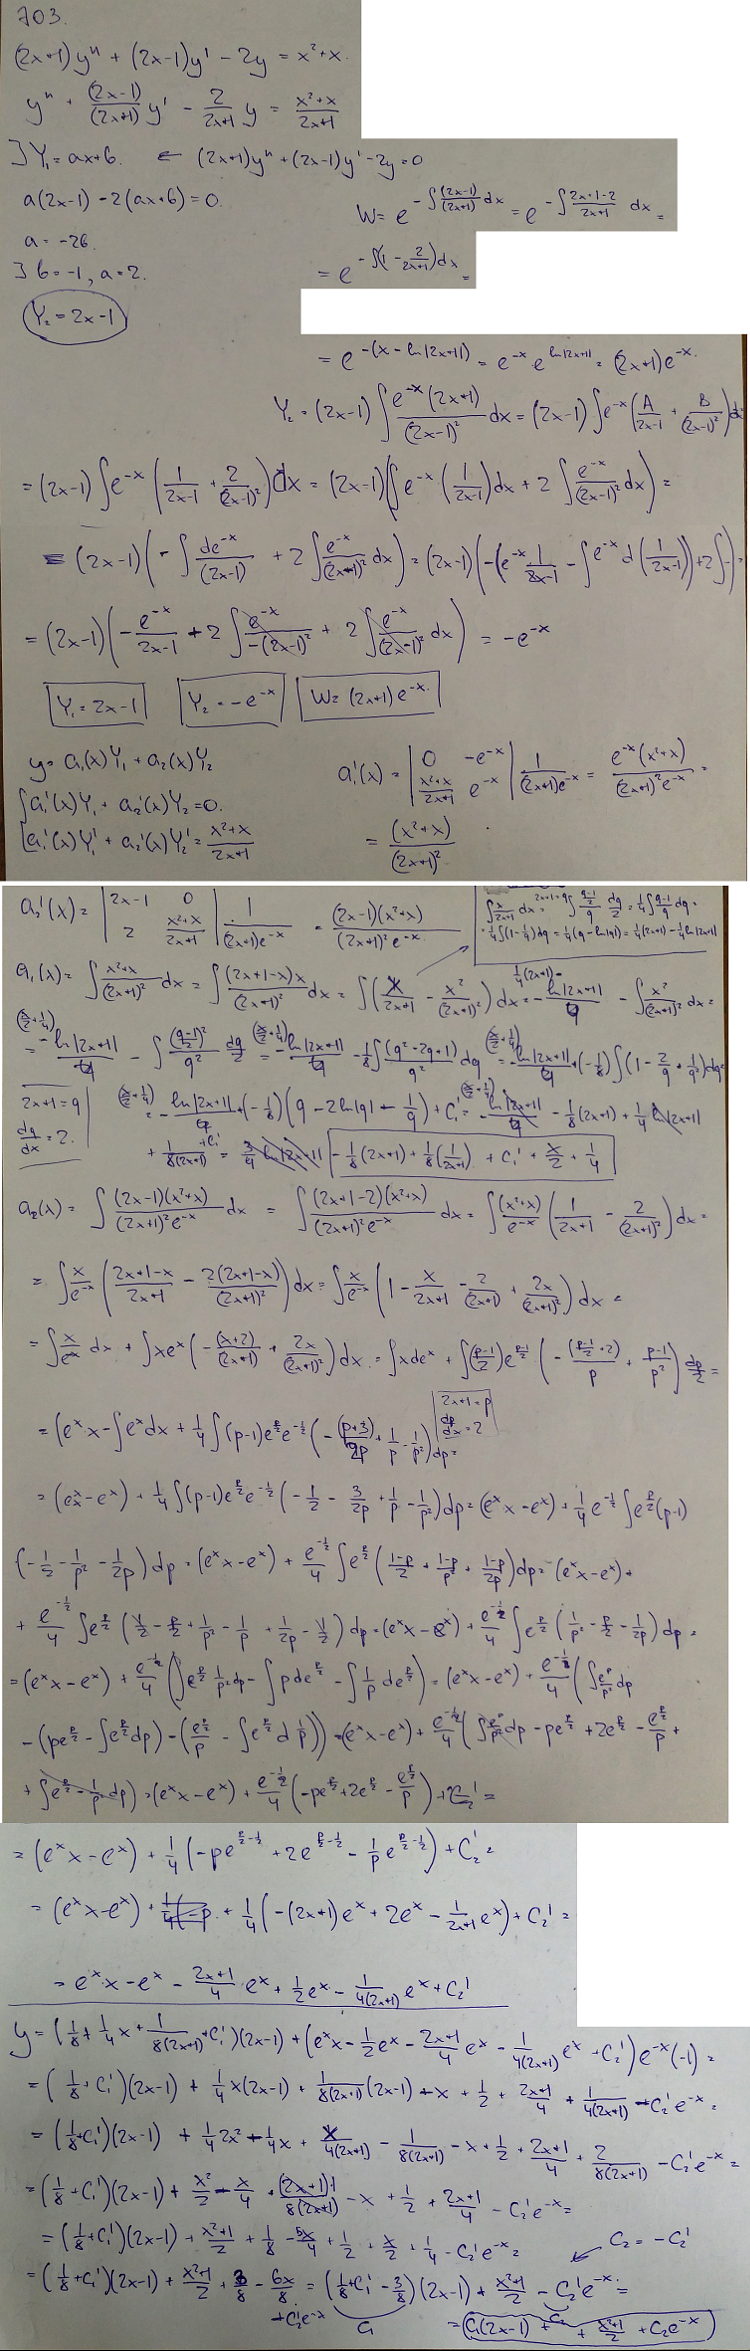 703.
(2x+1)y'' + (2x-1)y' - 2y = x²+x.
y'' + (2x-1)/(2x+1) y' - 2/(2x+1) y = (x²+x)/(2x+1)
] Y₁ = ax+b. ← (2x+1)y'' + (2x-1)y' - 2y = 0
a(2x-1) - 2(ax+b) = 0.
W = e^(-∫(2x-1)/(2x+1) dx) = e^(-∫(2x+1-2)/(2x+1) dx) =
a = -2b.
] b = -1, a = 2.
= e^(-∫(1 - 2/(2x+1))dx) =
Y₂ = 2x-1
= e^(-(x - ln|2x+1|)) = e^(-x) e^(ln|2x+1|) = (2x+1)e^(-x).
Y₂ = (2x-1) ∫ e^(-x)(2x+1)/(2x-1)² dx = (2x-1) ∫e^(-x) (A/(2x-1) + B/(2x-1)²) dx
= (2x-1) ∫e^(-x) (1/(2x-1) + 2/(2x-1)²) dx = (2x-1) (∫e^(-x) (1/(2x-1)) dx + 2 ∫ e^(-x)/(2x-1)² dx) =
= (2x-1) (-∫ de^(-x)/(2x-1) + 2∫ e^(-x)/(2x-1)² dx) = (2x-1) (-(e^(-x) 1/(2x-1) - ∫e^(-x) d(1/(2x-1))) + 2∫-) =
= (2x-1) (-e^(-x)/(2x-1) + 2∫ e^(-x)/-(2x-1)² + 2∫ e^(-x)/(2x-1)² dx) = -e^(-x)
Y₁ = 2x-1 Y₂ = -e^(-x) W = (2x+1)e^(-x).
y = a₁(x)Y₁ + a₂(x)Y₂
a₁'(x) = |0 -e^(-x); (x²+x)/(2x+1) e^(-x)| 1/((2x+1)e^(-x)) = e^(-x)(x²+x)/((2x+1)²e^(-x)) =
{a₁'(x)Y₁ + a₂'(x)Y₂ = 0.
{a₁'(x)Y₁' + a₂'(x)Y₂' = (x²+x)/(2x+1)
= (x²+x)/(2x+1)²
a₂'(x) = |2x-1 0; 2 (x²+x)/(2x+1)| 1/((2x+1)e^(-x)) = (2x-1)(x²+x)/((2x+1)²e^(-x))
∫ x/(2x+1) dx = 2x+1=q ∫ ((q-1)/2)/q dq/2 = 1/4 ∫ (q-1)/q dq =
= 1/4 ∫(1 - 1/q)dq = 1/4(q - ln|q|) = 1/4(2x+1) - 1/4 ln|2x+1|
a₁(x) = ∫ (x²+x)/(2x+1)² dx = ∫ (2x+1-x)x/(2x+1)² dx = ∫ (x/(2x+1) - x²/(2x+1)²) dx = 1/4(2x+1) - ln|2x+1|/4 - ∫ x²/(2x+1)² dx =
= (x/2+1/4) - ln|2x+1|/4 - ∫ ((q-1)/2)²/q² dq/2 = (x/2+1/4) - ln|2x+1|/4 - 1/8 ∫ (q²-2q+1)/q² dq = (x/2+1/4) - ln|2x+1|/4 + (-1/8) ∫(1 - 2/q + 1/q²)dq =
2x+1 = q
dq/dx = 2.
(x/2+1/4) = - ln|2x+1|/4 + (-1/8)(q - 2ln|q| - 1/q) + C₁' = (x/2+1/4) - ln|2x+1|/4 - 1/8(2x+1) + 1/4 ln|2x+1|
+ 1/(8(2x+1)) + C₁' = 3/4 ln|2x+1| - 1/8(2x+1) + 1/8(1/(2x+1)) + C₁' + x/2 + 1/4
a₂(x) = ∫ (2x-1)(x²+x)/((2x+1)²e^(-x)) dx = ∫ (2x+1-2)(x²+x)/((2x+1)²e^(-x)) dx = ∫ (x²+x)/e^(-x) (1/(2x+1) - 2/(2x+1)²) dx =
= ∫ x/e^(-x) ((2x+1-x)/(2x+1) - 2(2x+1-x)/(2x+1)²) dx = ∫ x/e^(-x) (1 - x/(2x+1) - 2/(2x+1) + 2x/(2x+1)²) dx =
= ∫ x/e^(-x) dx + ∫xe^x (-(x+2)/(2x+1) + 2x/(2x+1)²) dx = ∫xde^x + ∫((p-1)/2) e^((p-1)/2) (-((p-1)/2+2)/p + (p-1)/p²) dp/2 =
= (e^x x - ∫e^x dx + 1/4 ∫(p-1)e^(p/2)e^(-1/2) (-(p+3)/2p + 1/p - 1/p²) dp =
2x+1 = p
dp/dx = 2
= (e^x x - e^x) + 1/4 ∫(p-1)e^(p/2)e^(-1/2) (-1/2 - 3/2p + 1/p - 1/p²) dp = (e^x x - e^x) + 1/4 e^(-1/2) ∫e^(p/2)(p-1)
(-1/2 - 1/p² - 1/2p) dp = (e^x x - e^x) + e^(-1/2)/4 ∫e^(p/2) ((1-p)/2 + (1-p)/p² + (1-p)/2p) dp = (e^x x - e^x) +
+ e^(-1/2)/4 ∫e^(p/2) (1/2 - p/2 + 1/p² - 1/p + 1/2p - 1/2) dp = (e^x x - e^x) + e^(-1/2)/4 ∫e^(p/2) (1/p² - p/2 - 1/2p) dp =
= (e^x x - e^x) + e^(-1/2)/4 (∫e^(p/2) 1/p² dp - ∫p de^(p/2) - ∫1/p de^(p/2)) = (e^x x - e^x) + e^(-1/2)/4 (∫ e^(p/2)/p² dp
- (pe^(p/2) - ∫e^(p/2)dp) - (e^(p/2)/p - ∫e^(p/2) d 1/p)) = (e^x x - e^x) + e^(-1/2)/4 (∫ e^(p/2)/p² dp - pe^(p/2) + 2e^(p/2) - e^(p/2)/p +
+ ∫e^(p/2) - 1/p² dp) = (e^x x - e^x) + e^(-1/2)/4 (-pe^(p/2) + 2e^(p/2) - e^(p/2)/p) + C₂' =
= (e^x x - e^x) + 1/4 (-pe^(p/2-1/2) + 2e^(p/2-1/2) - 1/p e^(p/2-1/2)) + C₂' =
= (e^x x - e^x) + 1/4(-p + 1/4 (-(2x+1)e^x + 2e^x - 1/(2x+1) e^x) + C₂' =
= e^x x - e^x - (2x+1)/4 e^x + 1/2 e^x - 1/(4(2x+1)) e^x + C₂'
y = (1/8 + 1/4 x + 1/(8(2x+1)) + C₁')(2x-1) + (e^x x - 1/2 e^x - (2x+1)/4 e^x - 1/(4(2x+1)) e^x + C₂')e^(-x)(-1) =
= (1/8 + C₁')(2x-1) + 1/4 x(2x-1) + 1/(8(2x+1)) (2x-1) - x + 1/2 + (2x+1)/4 + 1/(4(2x+1)) - C₂'e^(-x) =
= (1/8 + C₁')(2x-1) + 1/4 2x² - 1/4 x + x/(4(2x+1)) - 1/(8(2x+1)) - x + 1/2 + (2x+1)/4 + 2/(8(2x+1)) - C₂'e^(-x) =
= (1/8 + C₁')(2x-1) + x²/2 - x/4 + (2x+1)1/(8(2x+1)) - x + 1/2 + (2x+1)/4 - C₂'e^(-x) =
= (1/8 + C₁')(2x-1) + (x²+1)/2 + 1/8 - 5x/4 + 1/2 + x/2 + 1/4 - C₂'e^(-x) = C₂ = -C₂'
= (1/8 + C₁')(2x-1) + (x²+1)/2 + 3/8 - 6x/8 = (1/8 + C₁' - 3/8)(2x-1) + (x²+1)/2 - C₂'e^(-x) =
+ C₂'e^(-x) C₁ C₂
= C₁(2x-1) + (x²+1)/2 + C₂e^(-x)